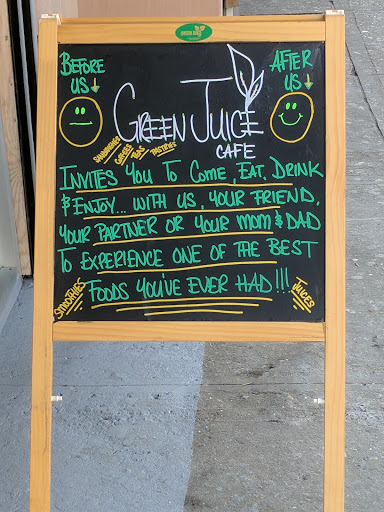 BEFORE
US
AFTER
US
GREEN JUICE
CAFE
SANDWICHES
COFFEES
TEAS
PASTRIES
INVITES YOU TO COME, EAT, DRINK
& ENJOY... WITH US, YOUR FRIEND,
YOUR PARTNER OR YOUR MOM & DAD
TO EXPERIENCE ONE OF THE BEST
FOODS YOU'VE EVER HAD!!!
SMOOTHIES
JUICES